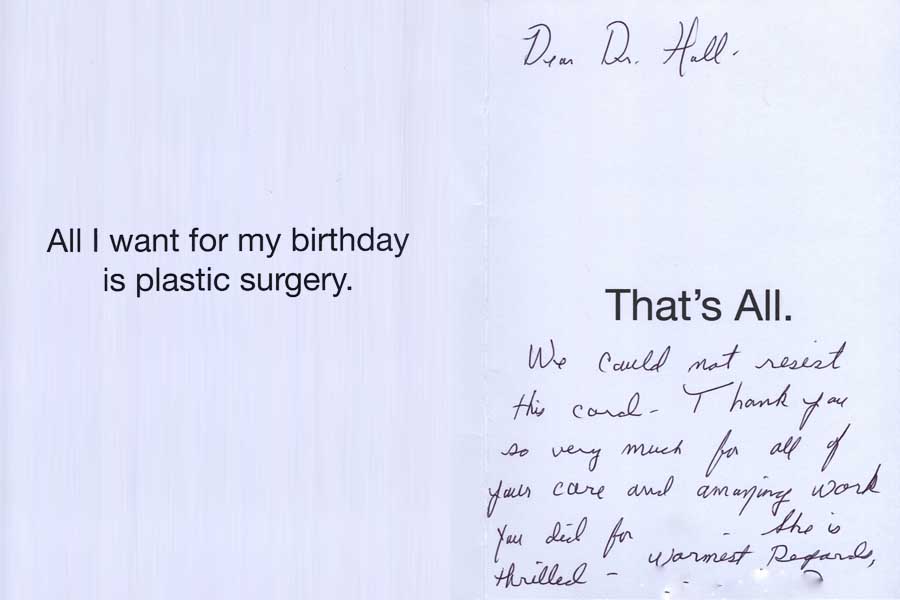 All I want for my birthday
is plastic surgery.
Dear Dr. Hall-
That's All.
We could not resist
this card - Thank you
so very much for all of
your care and amazing work
you did for - She is
thrilled - Warmest Regards,